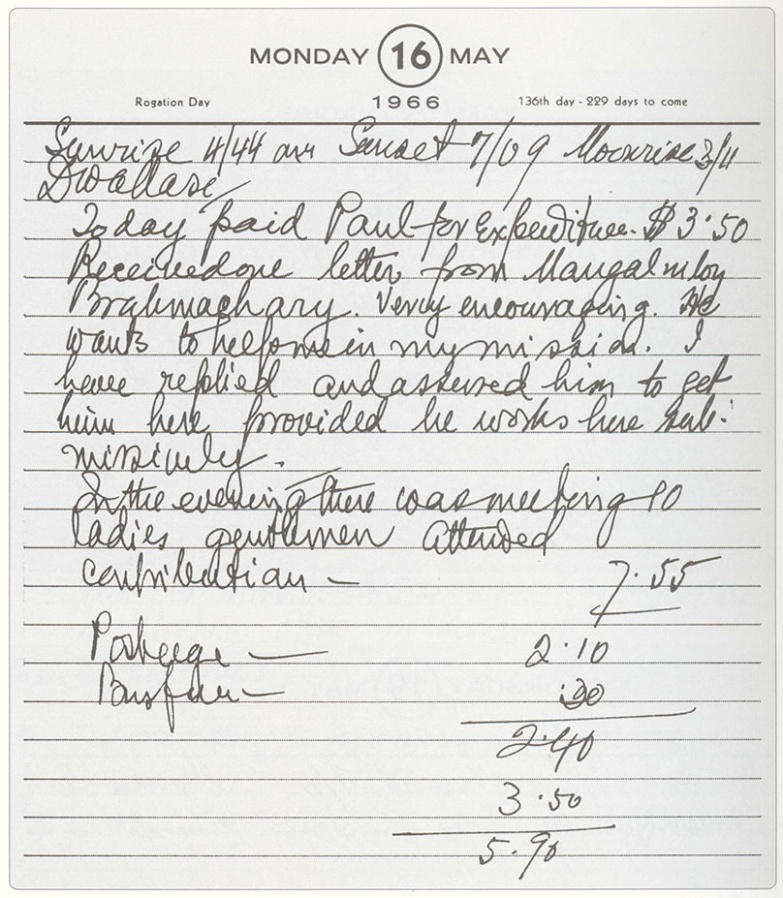 MONDAY 16 MAY
Rogation Day 1966 136th day - 229 days to come
Sunrise 4/44 am Sunset 7/09 Moonrise 3/11
Dwadasi
Today paid Paul for Expenditure. $ 3.50
Received one letter from Mangalniloy
Brahmachary. Very encouraging. He
wants to help me in my mission. I
have replied and assured him to get
him here provided he works here sub-
missively.
In the evening there was meeting 10
ladies gentlemen attended
contribution — 7.55
Postage — 2.10
Bus fare — .30
2.40
3.50
5.90